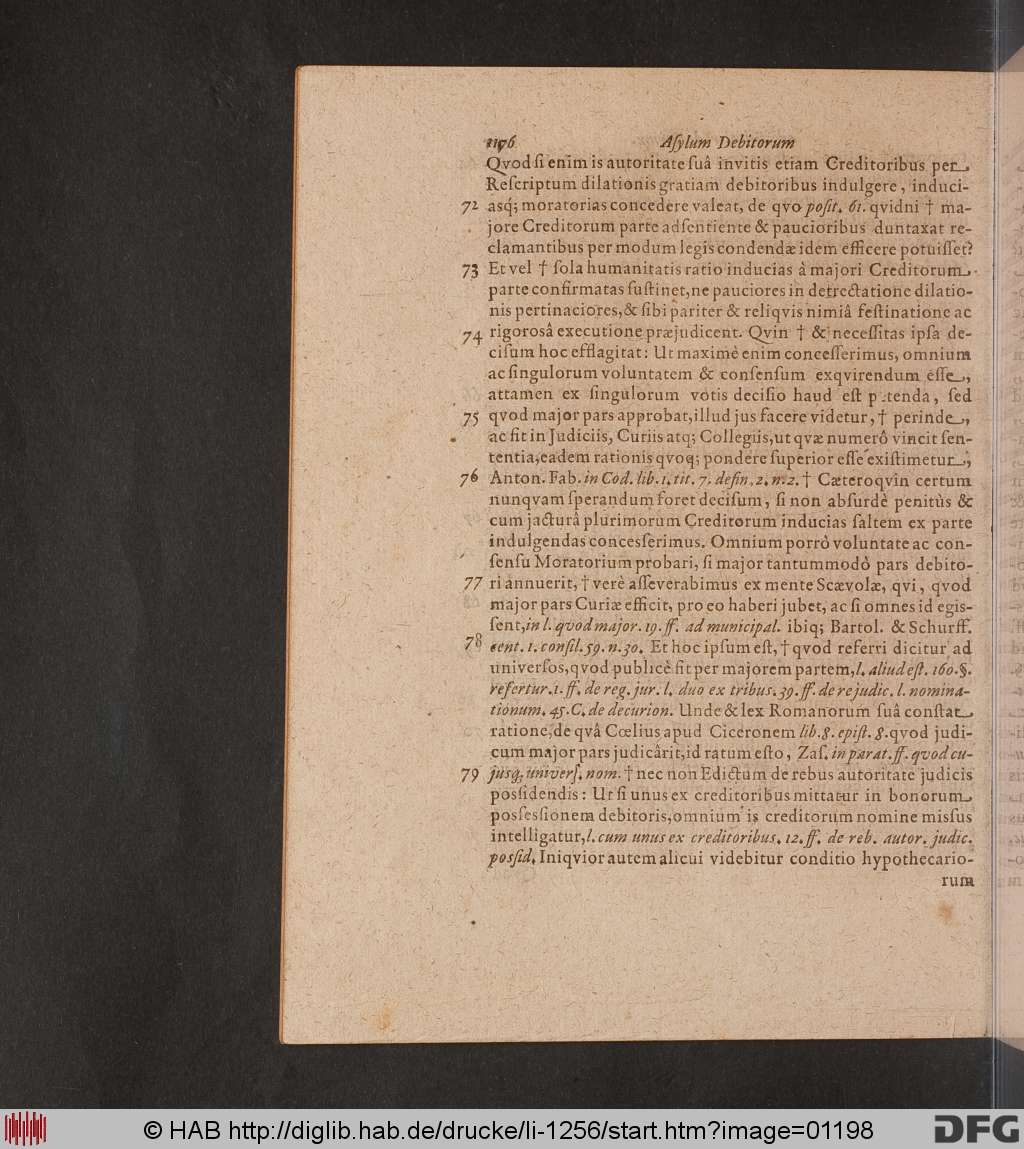 1176 Aſylum Debitorum
Qvod ſi enim is autoritate ſuâ invitis etiam Creditoribus per
Reſcriptum dilationis gratiam debitoribus indulgere, induci-
72 asq; moratorias concedere valeat, de qvo poſit. 61. qvidni † ma-
jore Creditorum parte adſentiente & paucioribus duntaxat re-
clamantibus per modum legis condendæ idem efficere potuiſſet?
73 Et vel † ſola humanitatis ratio inducias à majori Creditorum
parte confirmatas ſuſtinet, ne pauciores in detrectatione dilatio-
nis pertinaciores, & ſibi pariter & reliqvis nimiâ feſtinatione ac
74 rigorosâ executione præjudicent. Qvin † & neceſſitas ipſa de-
ciſum hoc efflagitat: Ut maximè enim conceſſerimus, omnium
ac ſingulorum voluntatem & conſenſum exqvirendum eſſe,
attamen ex ſingulorum votis deciſio haud eſt petenda, ſed
75 qvod major pars approbat, illud jus facere videtur, † perinde,
ac fit in Judiciis, Curiis atq; Collegiis, ut qvæ numerô vincit ſen-
tentia, eadem rationis qvoq; pondere ſuperior eſſe exiſtimetur,
76 Anton. Fab. in Cod. lib. 1. tit. 7. defin. 2. n. 2. † Cæteroqvin certum
nunqvam ſperandum foret deciſum, ſi non abſurdè penitùs &
cum jacturâ plurimorum Creditorum inducias ſaltem ex parte
indulgendas concesſerimus. Omnium porrò voluntate ac con-
ſenſu Moratorium probari, ſi major tantummodò pars debito-
77 ri annuerit, † verè aſſeverabimus ex mente Scævolæ, qvi, qvod
major pars Curiæ efficit, pro eo haberi jubet, ac ſi omnes id egis-
ſent, in l. qvod major. 19. ff. ad municipal. ibiq; Bartol. & Schurff.
78 cent. 1. conſil. 59. n. 30. Et hoc ipſum eſt, † qvod referri dicitur ad
univerſos, qvod publicè fit per majorem partem, l. aliud eſt. 160. §.
refertur. 1. ff. de reg. jur. l. duo ex tribus. 39. ff. de re judic. l. nomina-
tionum. 45. C. de decurion. Unde & lex Romanorum ſuâ conſtat
ratione, de qvâ Cœlius apud Ciceronem lib. 8. epiſt. 8. qvod judi-
cum major pars judicârit, id ratum eſto, Zaſ. in parat. ff. qvod cu-
79 jusq; univerſ. nom. † nec non Edictum de rebus autoritate judicis
posſidendis: Ut ſi unus ex creditoribus mittatur in bonorum
posſesſionem debitoris, omnium is creditorum nomine misſus
intelligatur, l. cum unus ex creditoribus. 12. ff. de reb. autor. judic.
posſid. Iniqvior autem alicui videbitur conditio hypothecario-
rum
© HAB http://diglib.hab.de/drucke/li-1256/start.htm?image=01198
DFG